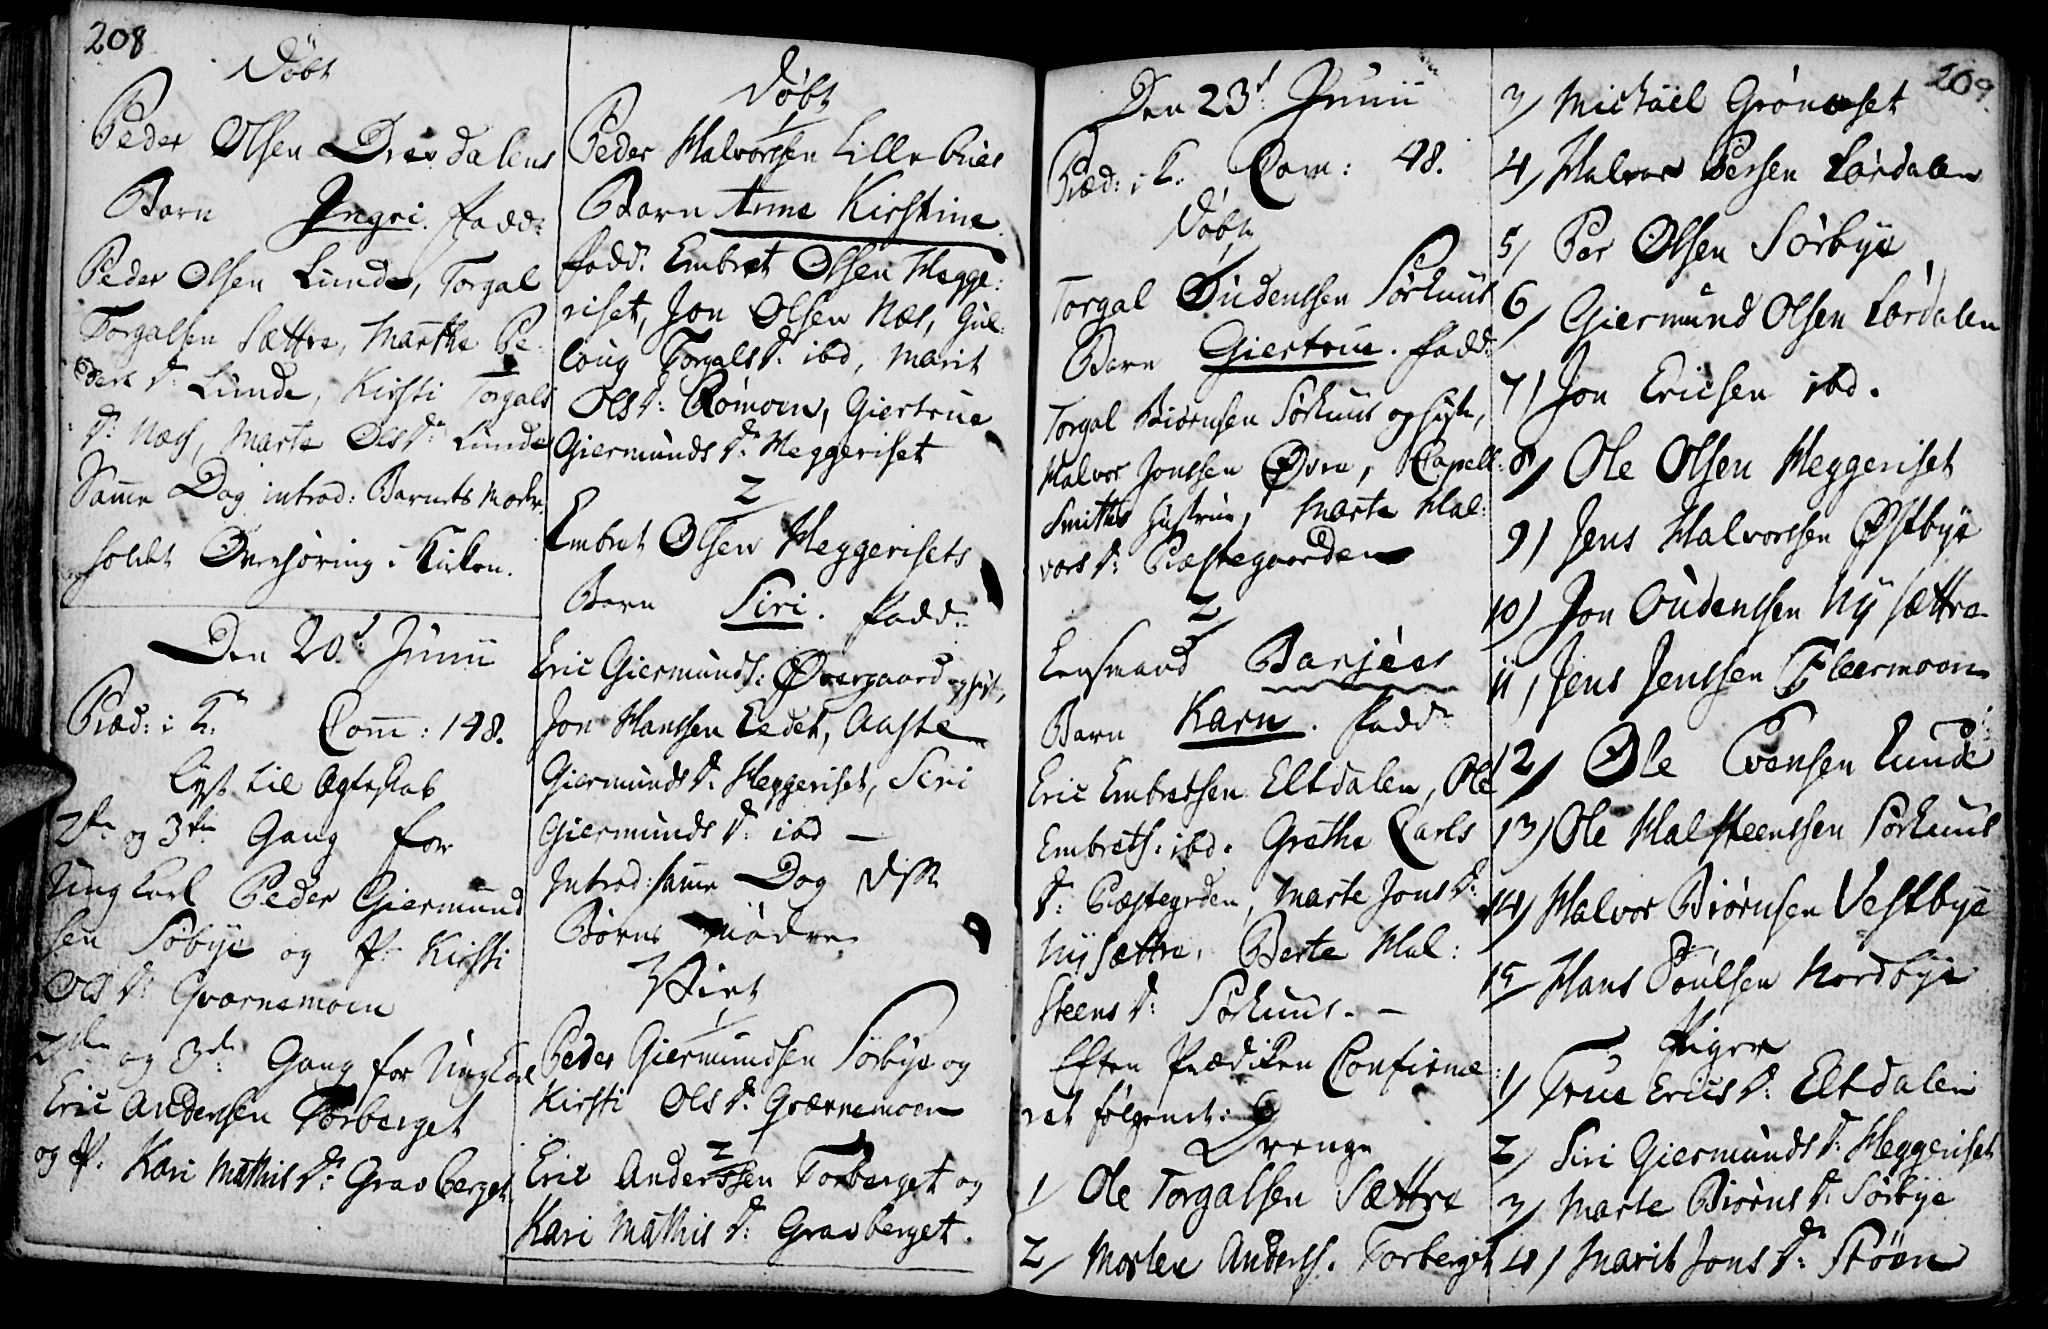 208
Döbt
Peder Olsen Drevdalens
Barn Ingri. fadd:
Peder Olsen Lunde, Torgal
Torgalsen Sættre, Marthe Pe-
ders D: Lunde, Kirsti Torgals
D: Næs, Marte Ols D: Lunde
Samme Dag introd: Barnets Moder.
holdt Overhöring i Kirken.
Den 20de Junii
Præd: i K. Com: 148.
Lyst til Ægteskab
2den og 3die Gang for
Ung Karl Peder Giermund
sen Söbye og P. Kirsti
Ols D: Qværnemoen
2den og 3die Gang for Ung Karl
Eric Andersen Torberget
og P. Kari Mathis D: Gravberget
Döbt
Peder Halvorssen Lillebues
Barn Anne Kirstine.
fadd. Embret Olsen Hegge:
riset, Jon Olsen Næs, Gul-
loug Torgals D: ibd, Marit
Ols D: Römoen, Giertrue
Giermunds D: Heggeriset
2
Embret Olsen Heggerisets
Barn Siri. fadd:
Eric Giermunds: Övergaard og hust,
Jon Hanssen Ledet, Aaste
Giermunds D: Heggeriset, Siri
Giermunds D: ibd —
Introd: samme Dag disse
Börns Mödre
Viet
Peder Giermundsen Sörbye og
Kirsti Ols D: Qværnemoen
2
Eric Anderssen Torberget og
Kari Mathis D: Gravberget.
Den 23de Junii
Præd: i K. Com: 48.
Döbt
Torgal Oudenssen Sörhuus
Barn Giertrue. fadd:
Torgal Biörnsen Sörhuus og hust,
Halvor Jonssen Övre, Capell:
Smiths Hustrue, Marte Hal:
vors D: Præstegaarden
2
Barjées
Barn Karn. fadd:
Eric Embretsen Eltdalen, Ole
Embrets: ibd. Grethe Carls
D: Præstegrden, Marte Jons D:
Nysættre, Berte Hal:
steens D: Sörhuus. —
Efter Prædiken Confirme:
ret fölgende:
Drenge
1/ Ole Torgalsen Sættre
2/ Morten Anders. Torberget
209.
3/ Michael Grönoset
4/ Halvor Persen Lördalen
5/ Per Olsen Sörbye
6/ Giermund Olsen Lördalen
7/ Jon Ericsen ibd.
8/ Ole Olsen Heggeriset
9/ Jens Halvorssen Östbye
10/ Jon Oudenssen Nysættre
11, Jens Jenssen Flermoen
12/ Ole Evensen Lunde
13/ Ole Halsteenssen Sörhuus
14/ Halvor Biörnsen Vestbye
15 Hans Poulsen Nordbye
Piger
1/ True Erics D: Eltdalen
2/ Siri Giermunds D: Heggeriset
3/ Marte Biörns D: Sörbye
4/ Marit Jons D: Stöen